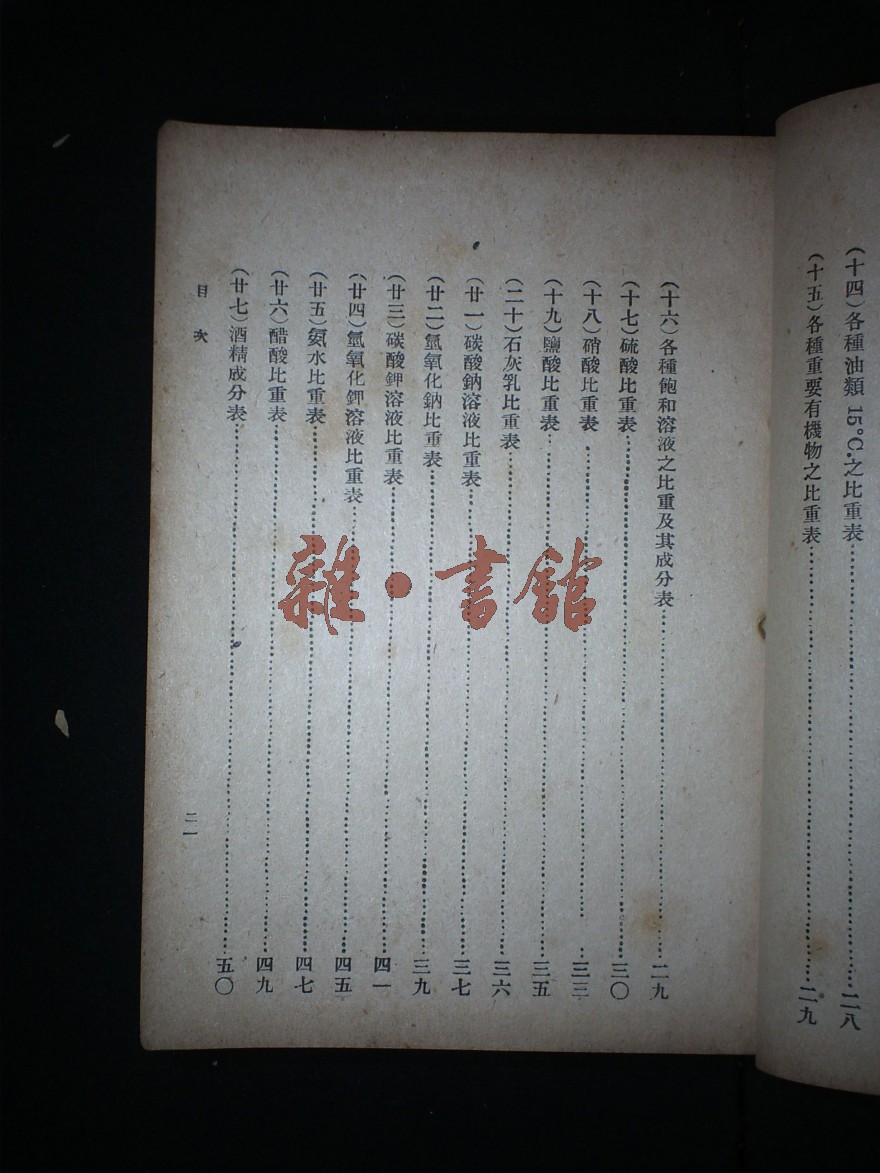 (十四)各種油類 15°C.之比重表……二八
(十五)各種重要有機物之比重表……二九
(十六)各種飽和溶液之比重及其成分表……二九
(十七)硫酸比重表……三〇
(十八)硝酸比重表……三三
(十九)鹽酸比重表……三五
(二十)石灰乳比重表……三六
(廿一)碳酸鈉溶液比重表……三七
(廿二)氫氧化鈉比重表……三九
(廿三)碳酸鉀溶液比重表……四一
(廿四)氫氧化鉀溶液比重表……四五
(廿五)氨水比重表……四七
(廿六)醋酸比重表……四九
(廿七)酒精成分表……五〇
目次
二一
雜·書館